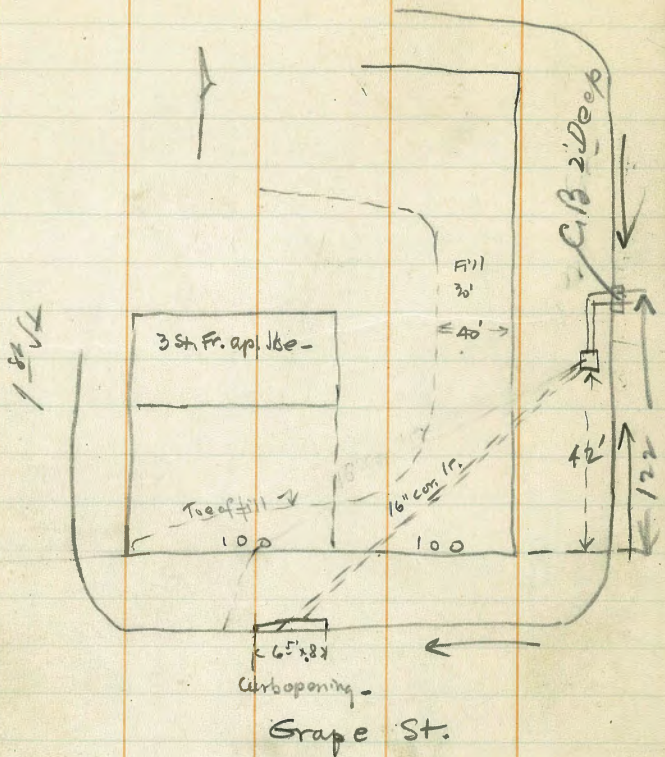 CB 2' Deep
Fill
30'
40'
1st St
3 St. Fr. ap. Hse-
42'
122
16" cor. Ir.
Toe of fill
100
100
6.5' x .8
Curb opening-
Grape St.